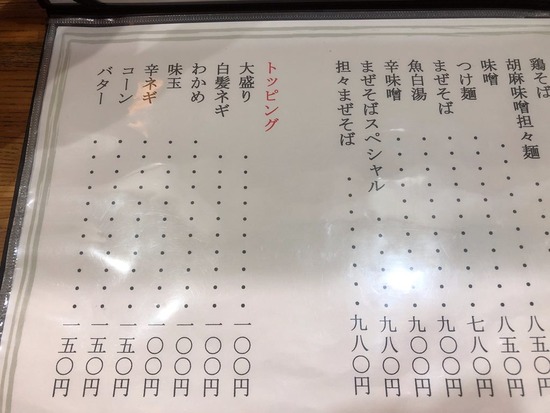 鶏そば
胡麻味噌担々麺
味噌・・・・・・・・・・八五〇円
つけ麺・・・・・・・・・・八五〇円
まぜそば・・・・・・・・・・七八〇円
魚白湯・・・・・・・・・・九〇〇円
辛味噌・・・・・・・・・・九〇〇円
まぜそばスペシャル・・・・・・・九八〇円
担々まぜそば・・・・・・・・九八〇円
トッピング
大盛り・・・・・・・・・・一〇〇円
白髪ネギ・・・・・・・・・・一〇〇円
わかめ・・・・・・・・・・一〇〇円
味玉・・・・・・・・・・・一〇〇円
辛ネギ・・・・・・・・・・・一五〇円
コーン・・・・・・・・・・・一五〇円
バター・・・・・・・・・・・一五〇円